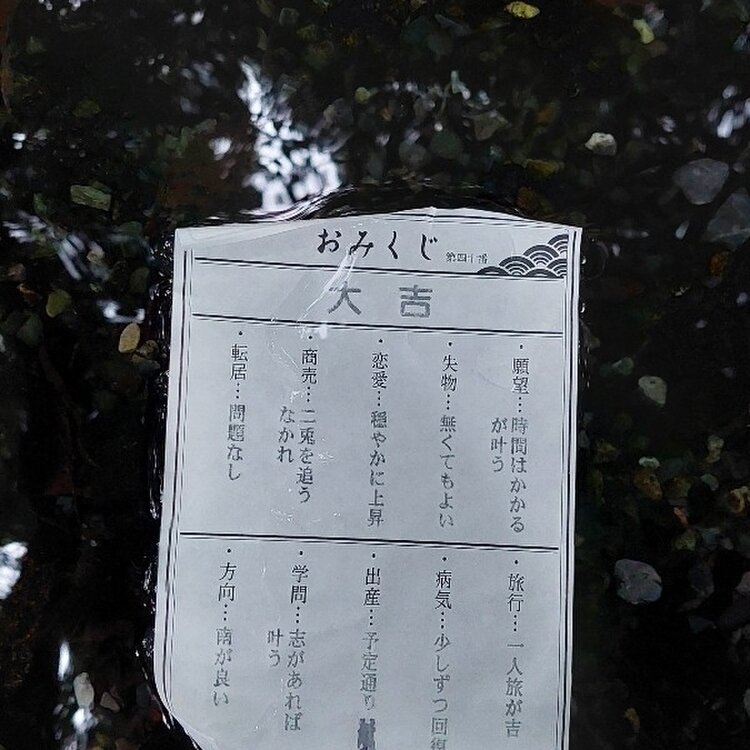 おみくじ 第四十番
大吉
・願望…時間はかかる
が叶う
・失物…無くてもよい
・恋愛…穏やかに上昇
・商売…二兎を追う
なかれ
・転居…問題なし
・旅行…一人旅が吉
・病気…少しずつ回復
・出産…予定通り
・学問…志があれば
叶う
・方向…南が良い